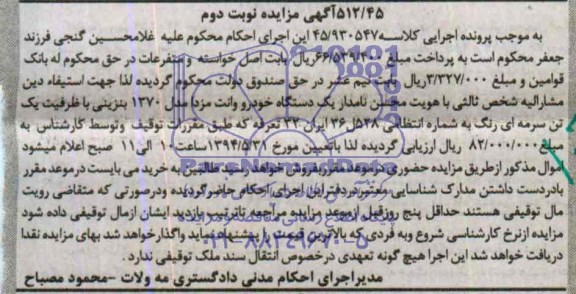 ۵۱۲/۴۵آگهی مزایده نوبت دوم
به موجب پرونده اجرایی کلاسه ۴۵/۹۳۰۵۴۷ این اجرای احکام محکوم علیه غلامحسین گنجی فرزند
جعفر محکوم است به پرداخت مبلغ ۶۶/۵۳۹/۴۰۰ریال بابت اصل خواسته و متفرعات در حق محکوم له بانک
قوامین و مبلغ ۳/۳۲۷/۰۰۰ریال بابت نیم عشر در حق صندوق دولت محکوم گردیده لذا جهت استیفاء دین
مشارالیه شخص ثالثی با هویت محسن نامدار یک دستگاه خودرو وانت مزدا مدل ۱۳۷۰ بنزینی با ظرفیت یک
تن سرمه ای رنگ به شماره انتظامی ۵۳۸ل۳۶ ایران۳۲ تعرفه که طبق مقررات توقیف وتوسط کارشناس به
مبلغ ۸۲/۰۰۰/۰۰۰ ریال ارزیابی گردیده لذا باتعیین مورخ ۱۳۹۴/۵/۳۱ ساعت۱۰ الی۱۱ صبح اعلام میشود
اموال مذکور ازطریق مزایده حضوری درموعد مقرربفروش خواهد رسید طالبین به خرید می بایست درموعد مقرر
بادردست داشتن مدارک شناسایی معتبردردفتراین اجرای احکام حاضرگردیده ودرصورتی که متقاضی رویت
مال توقیفی هستند حداقل پنج روزقبل ازموعد مزایده مراجعه تاترتیب بازدید ایشان ازمال توقیفی داده شود
مزایده ازنرخ کارشناسی شروع وبه فردی که بالاترین قیمت را پیشنهاد نماید واگذارخواهد شد بهای مزایده نقدا
دریافت خواهد شد این اجرا هیچ گونه تعهدی درخصوص انتقال سند ملک توقیفی ندارد.
مدیراجرای احکام مدنی دادگستری مه ولات -محمود مصباح
ParsNamadData
۰۲۱-۸۸۳۴۹۶۷۰-۵